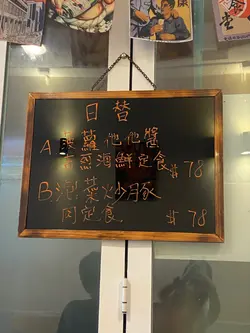 日替
A 菠蘿他他醬
吉烈海鮮定食 $78
B 泡菜炒豚
肉定食 $78